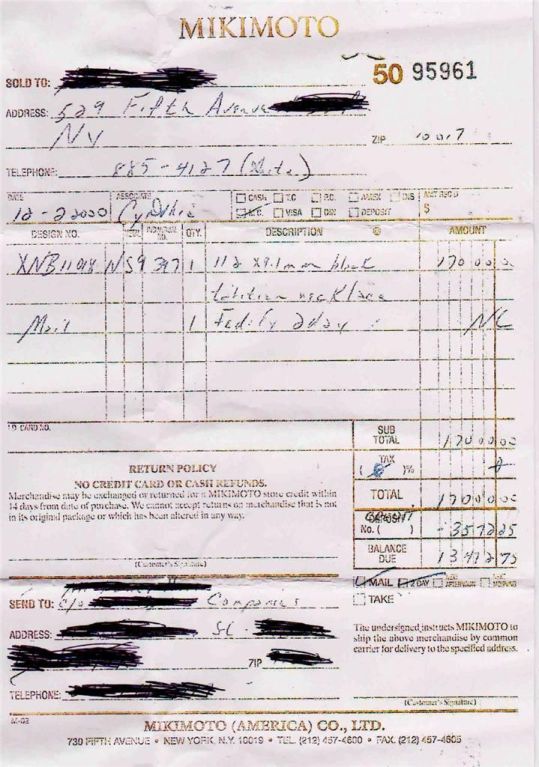 MIKIMOTO
SOLD TO:
50 95961
ADDRESS: 529 Fifth Avenue
NY ZIP 10017
TELEPHONE: 885-4127
DATE ASSOCIATE CASH T.C P.C. AMEX CNS
12-22000 Cynthia M.C. VISA DEPOSIT $
DESIGN NO. QTY. DESCRIPTION @ AMOUNT
XNB11018 NS9 397 1 11.2 x 9.1 mm black 17000 00
tahitian necklace
Mail 1 Fed. Ex 2 day NC
SUB TOTAL 17000 00
TAX ( )%
RETURN POLICY
NO CREDIT CARD OR CASH REFUNDS.
Merchandise may be exchanged or returned for a MIKIMOTO store credit within
14 days from date of purchase. We cannot accept returns on merchandise that is not
in its original package or which has been altered in any way.
TOTAL 17000 00
No. ( ) -3572 25
BALANCE DUE 13427 75
(Customer's Signature)
MAIL 2 DAY
TAKE
SEND TO: c/o Companies
ADDRESS:
ZIP
TELEPHONE:
The undersigned instructs MIKIMOTO to
ship the above merchandise by common
carrier for delivery to the specified address.
(Customer's Signature)
MIKIMOTO (AMERICA) CO., LTD.
730 FIFTH AVENUE • NEW YORK, N.Y. 10019 • TEL. (212) 457-4600 • FAX. (212) 457-4605